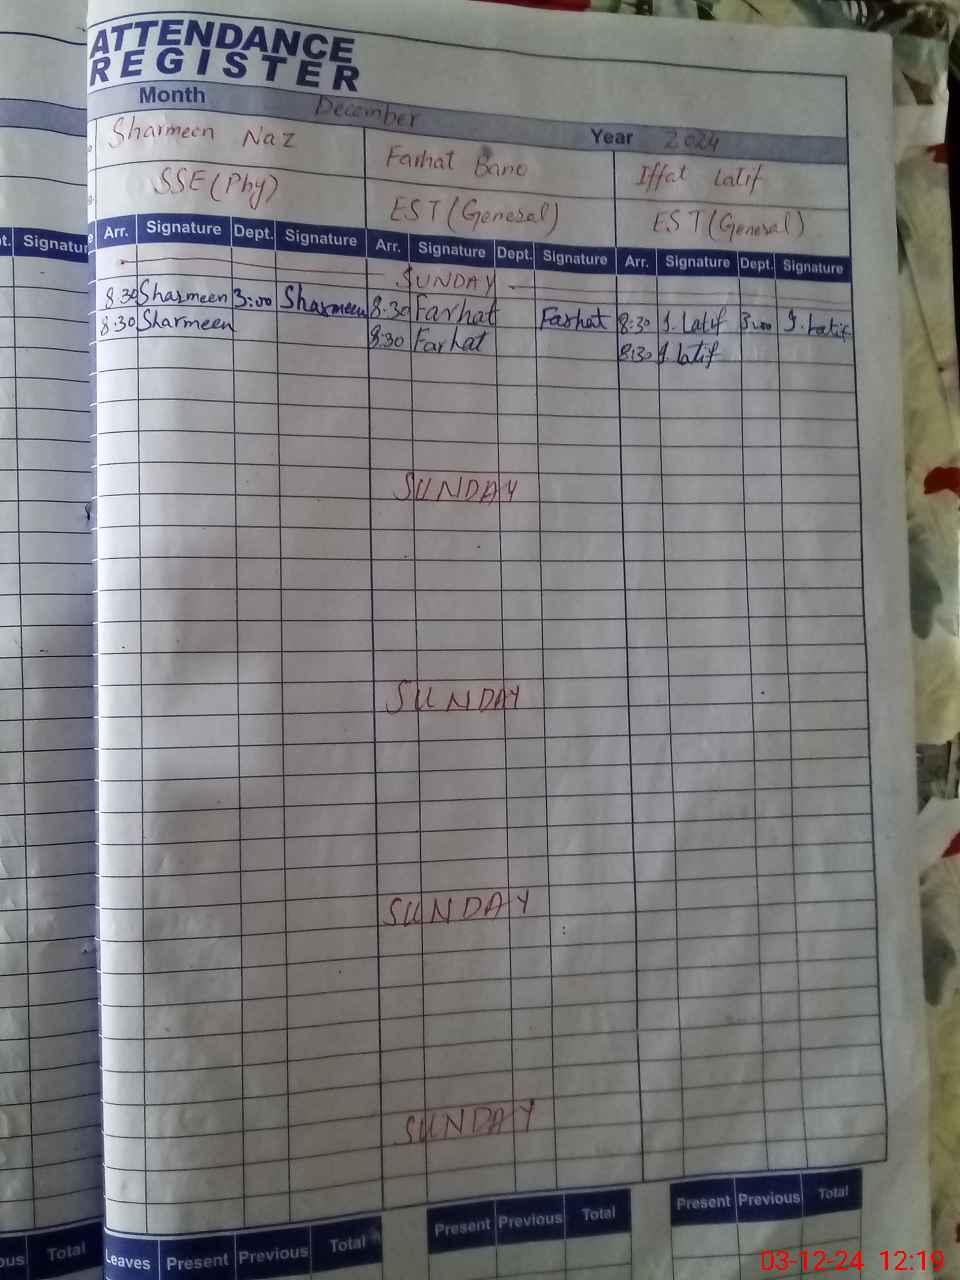 ATTENDANCE
REGISTER
Month December Year 2024
Sharmeen Naz Farhat Bano Iffat Latif
SSE(Phy) EST(General) EST(General)
Signature Arr. Signature Dept. Signature Arr. Signature Dept. Signature Arr. Signature Dept. Signature
SUNDAY
8:30 Sharmeen 3:00 Sharmeen 8:30 Farhat Farhat 8:30 I. Latif 3:00 I. Latif
8:30 Sharmeen 8:30 Farhat 8:30 I. Latif
SUNDAY
SUNDAY
SUNDAY
SUNDAY
Total Leaves Present Previous Total Present Previous Total Present Previous Total
03-12-24 12:19